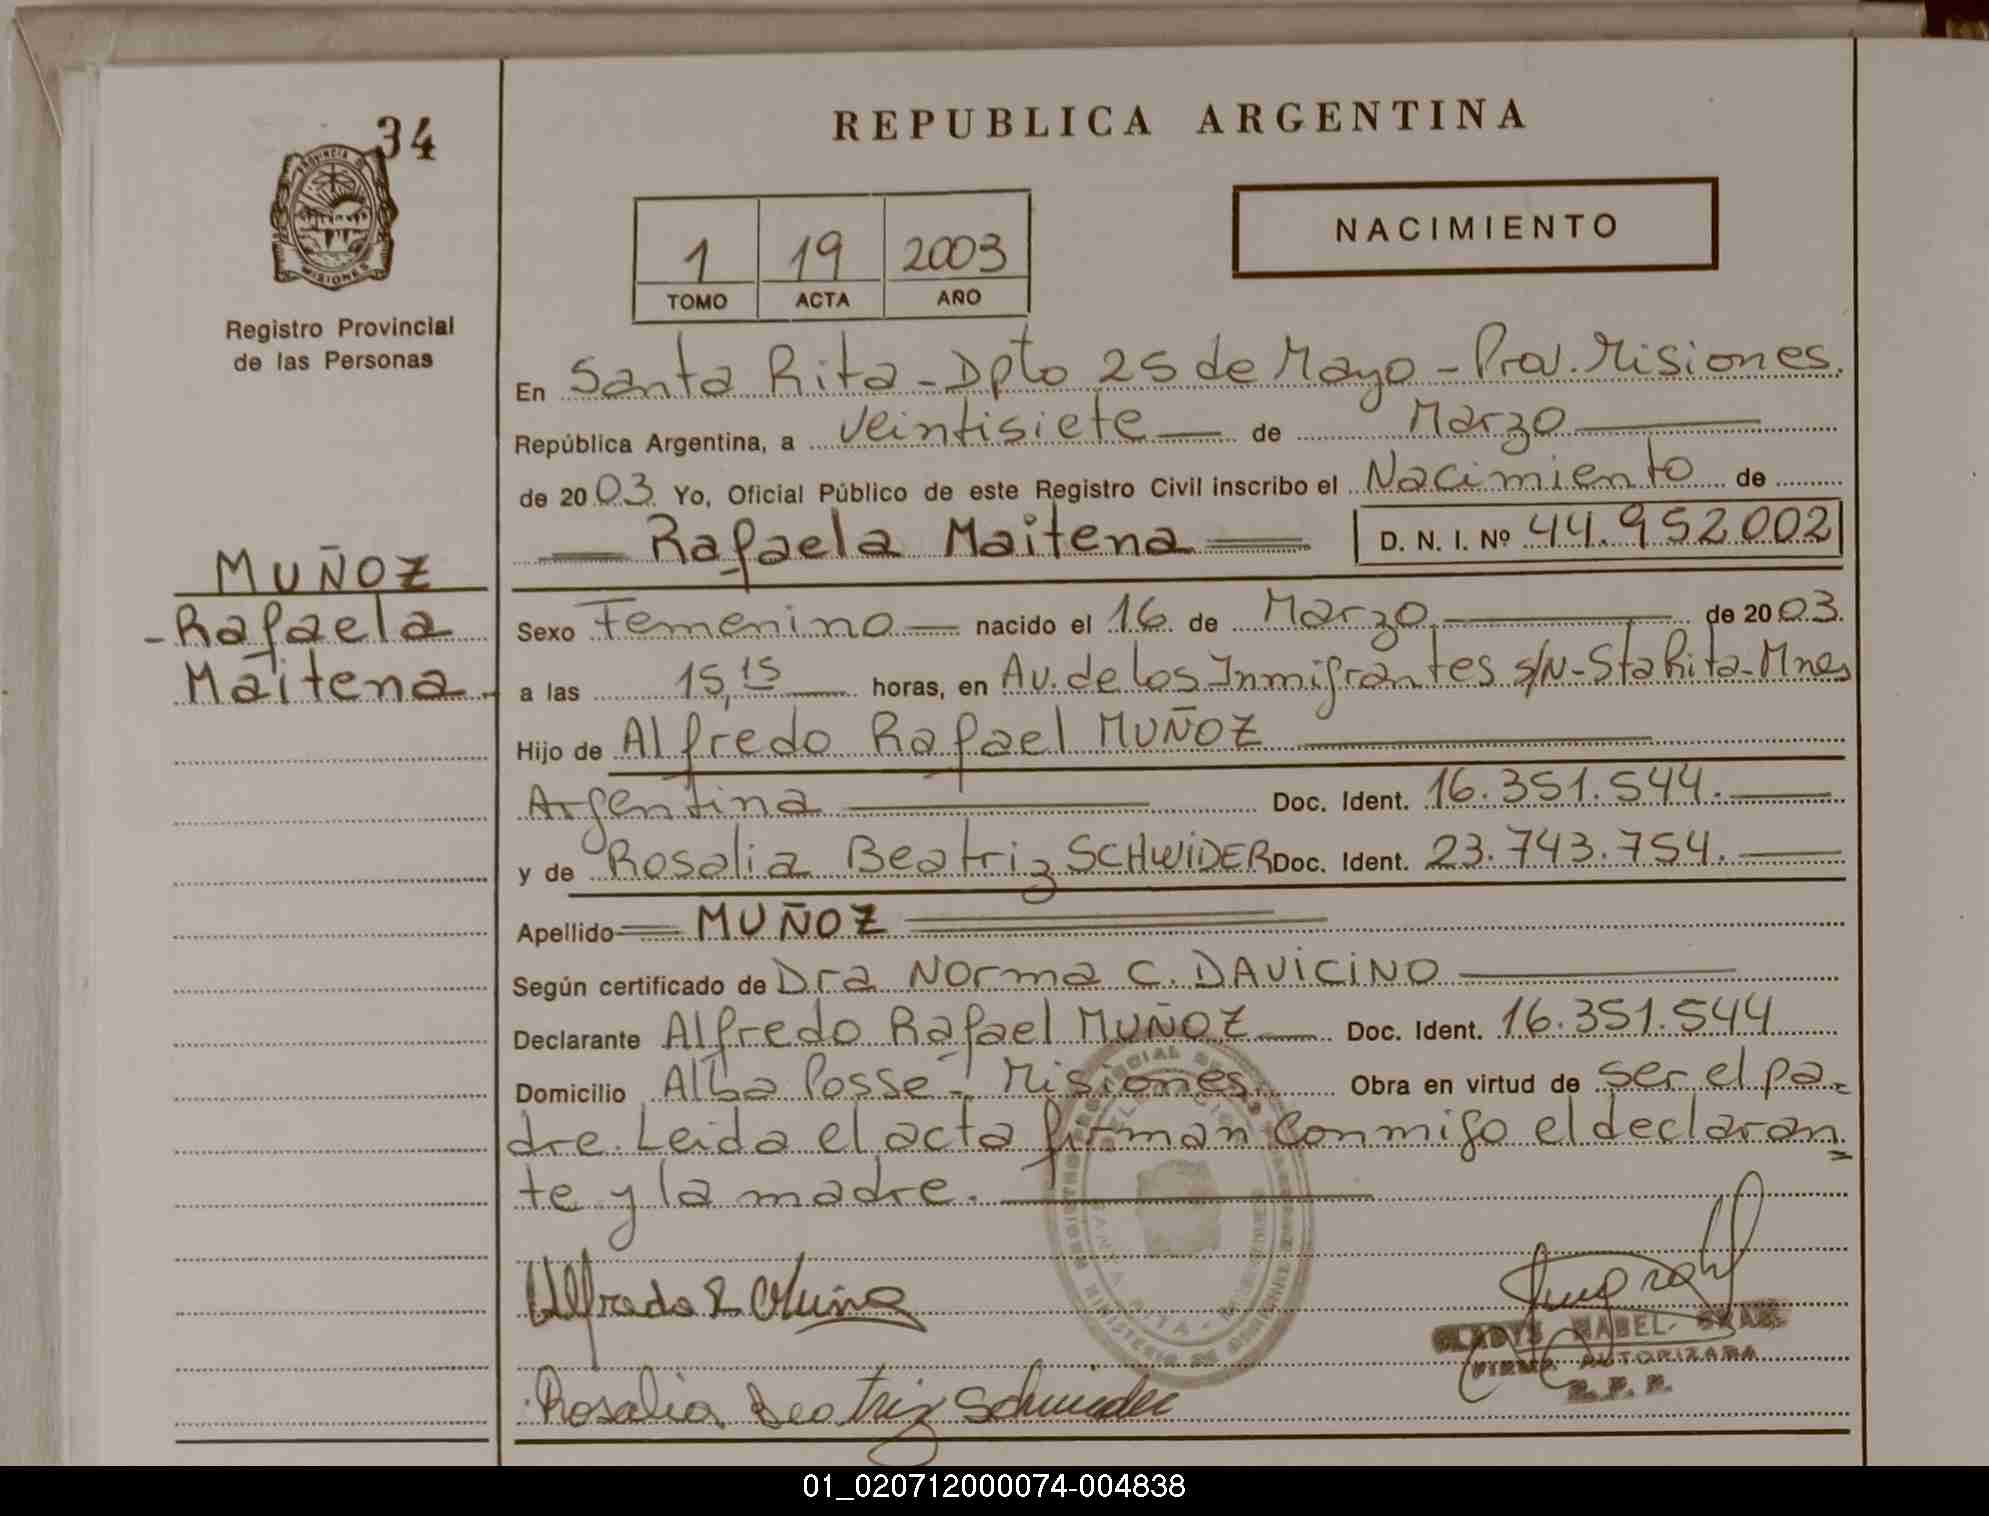 34
PROVINCIA DE
MISIONES
Registro Provincial
de las Personas
MUÑOZ
- Rafaela
Maitena.-
REPUBLICA ARGENTINA
1 19 2003
TOMO ACTA AÑO
NACIMIENTO
En Santa Rita - Dpto 25 de Mayo - Prov. Misiones.
República Argentina, a veintisiete de Marzo
de 2003. Yo, Oficial Público de este Registro Civil inscribo el Nacimiento de
Rafaela Maitena D. N. I. Nº 44.952.002
Sexo Femenino nacido el 16 de Marzo de 2003.
a las 15,15 horas, en Av. de los Inmigrantes s/N - Sta Rita - Mnes
Hijo de Alfredo Rafael MUÑOZ
Argentina Doc. Ident. 16.351.544.
y de Rosalia Beatriz SCHWIDER Doc. Ident. 23.743.754.
Apellido MUÑOZ
Según certificado de Dra Norma C. DAVICINO
Declarante Alfredo Rafael MUÑOZ Doc. Ident. 16.351.544
Domicilio Alba Posse - Misiones. Obra en virtud de ser el pa=
dre. Leida el acta firman conmigo el declaran=
te y la madre.
Alfredo R Muñoz
GLADYS MABEL
FIRMA AUTORIZADA
R. P. P.
Rosalia Beatriz Schwider
01_020712000074-004838